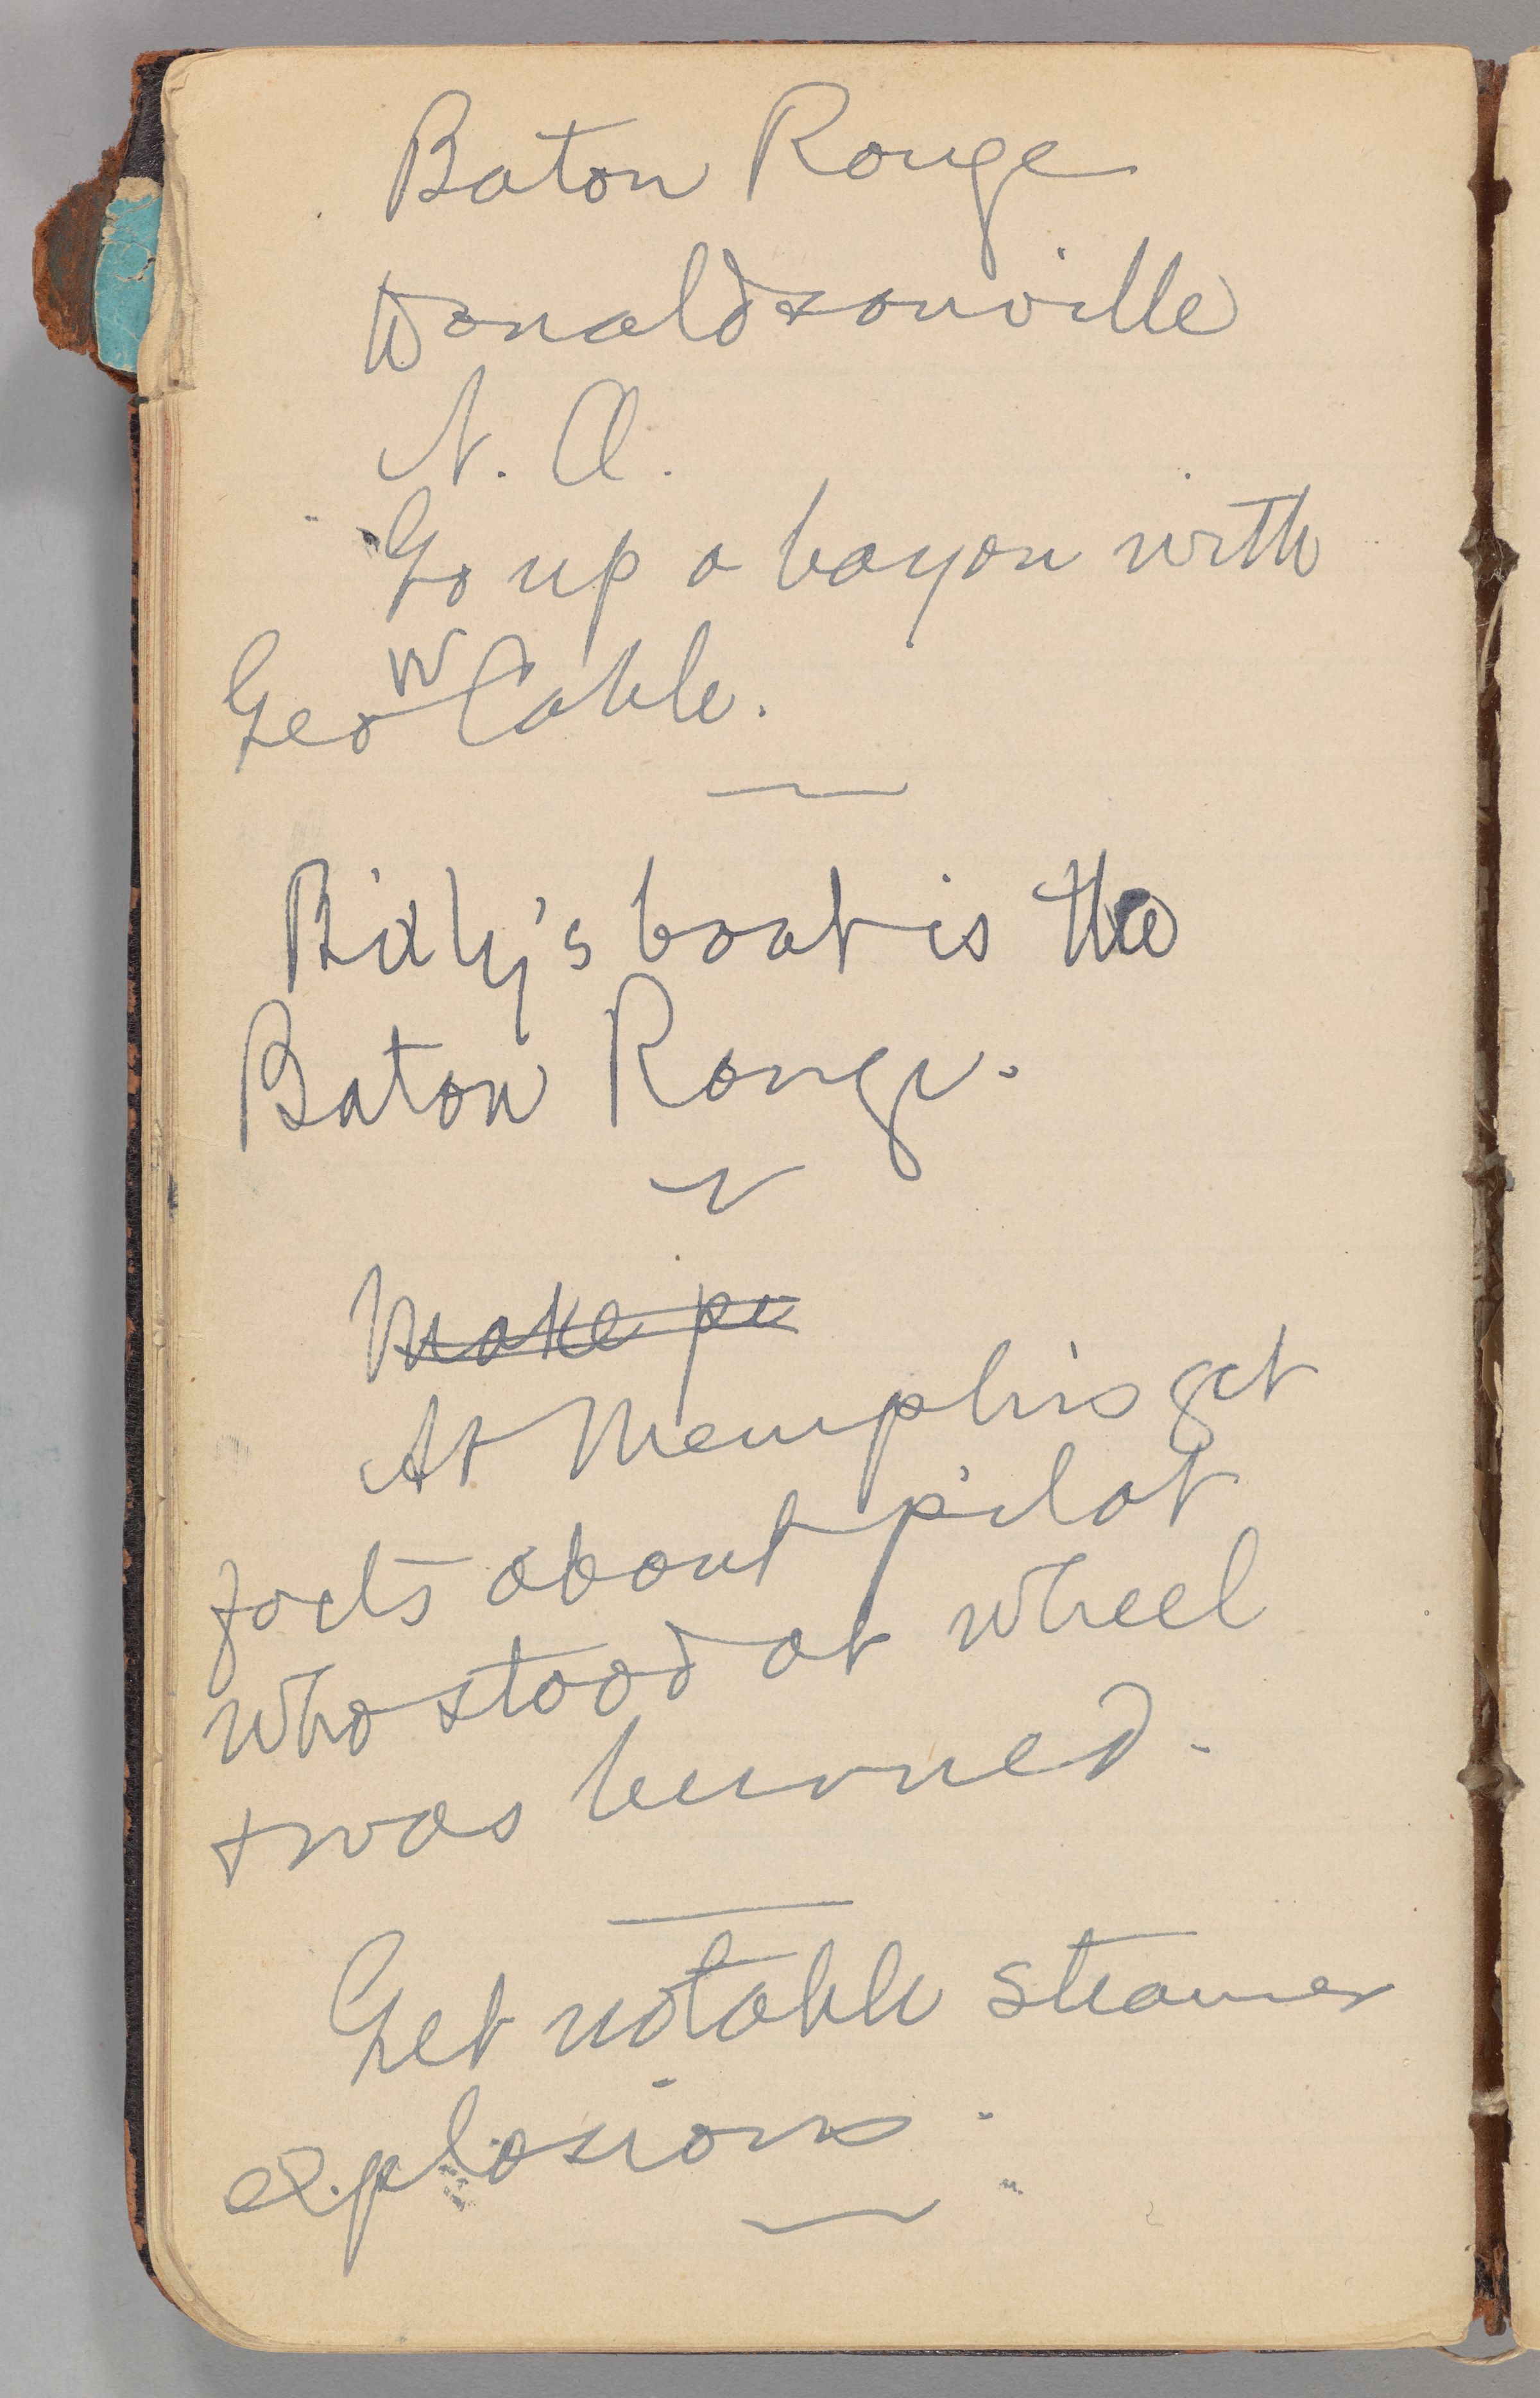 Baton Rouge
Donaldsonville
N. O.
Go up a bayou with
Geo W Cable.
Bixby's boat is the
Baton Rouge.
Make pe
At Memphis get
facts about pilot
who stood at wheel
& was burned.
Get notable steamer
explosions.